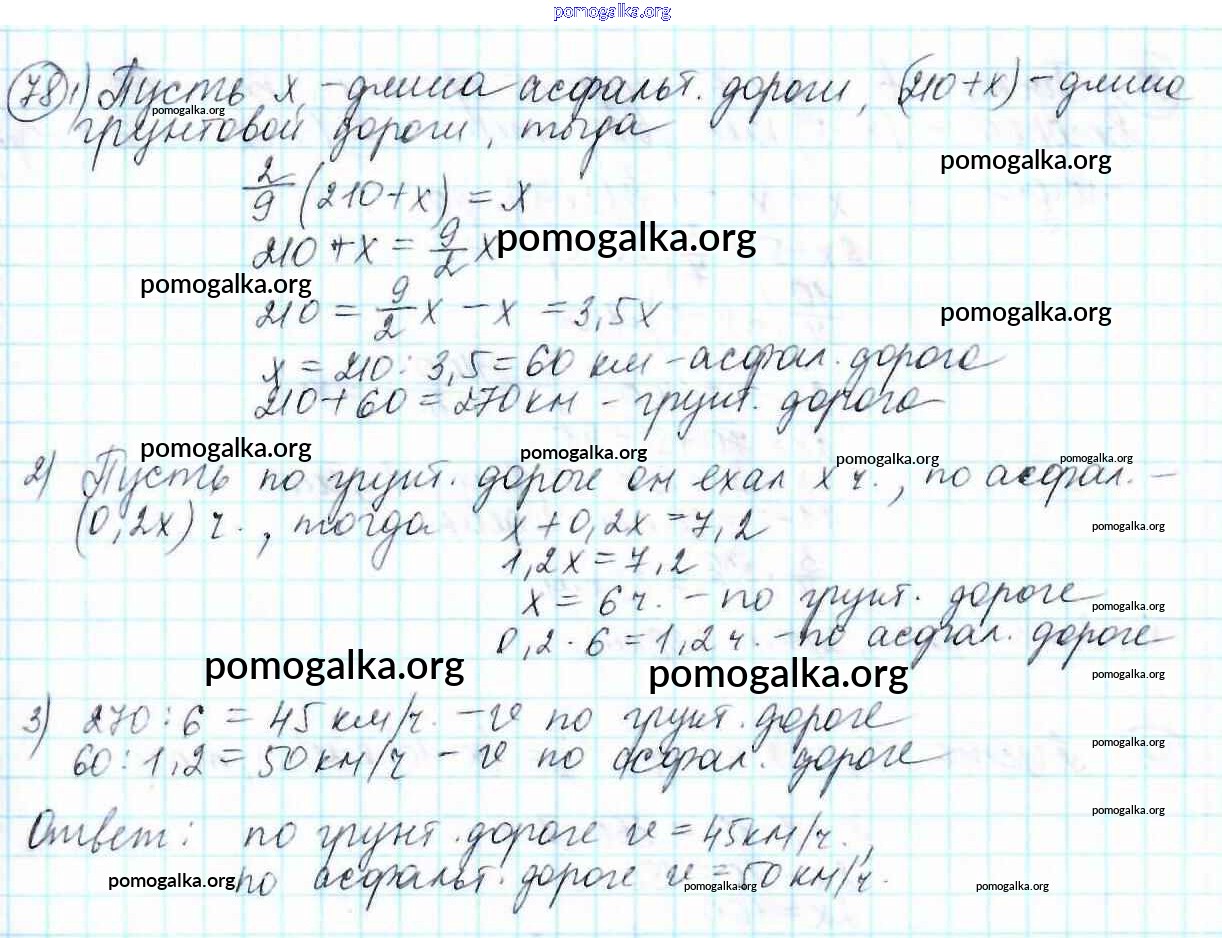 pomogalka.org
78 1) Пусть x - длина асфальт. дороги, (210+x) - длина
pomogalka.org
грунтовой дороги, тогда
pomogalka.org
2/9 (210+x) = x
210 + x = 9/2 x
pomogalka.org
pomogalka.org
210 = 9/2 x - x = 3,5x
pomogalka.org
x = 210 : 3,5 = 60 км - асфал. дорога
210 + 60 = 270 км - грунт. дорога
pomogalka.org pomogalka.org pomogalka.org pomogalka.org
2) Пусть по грунт. дороге он ехал x ч., по асфал. -
(0,2x) ч., тогда x + 0,2x = 7,2
pomogalka.org
1,2x = 7,2
x = 6 ч. - по грунт. дороге
pomogalka.org
0,2 · 6 = 1,2 ч. - по асфал. дороге
pomogalka.org pomogalka.org pomogalka.org
3) 270 : 6 = 45 км/ч. - v по грунт. дороге
pomogalka.org
60 : 1,2 = 50 км/ч - v по асфал. дороге
pomogalka.org
Ответ: по грунт. дороге v = 45 км/ч.,
по асфальт. дороге v = 50 км/ч.
pomogalka.org pomogalka.org pomogalka.org